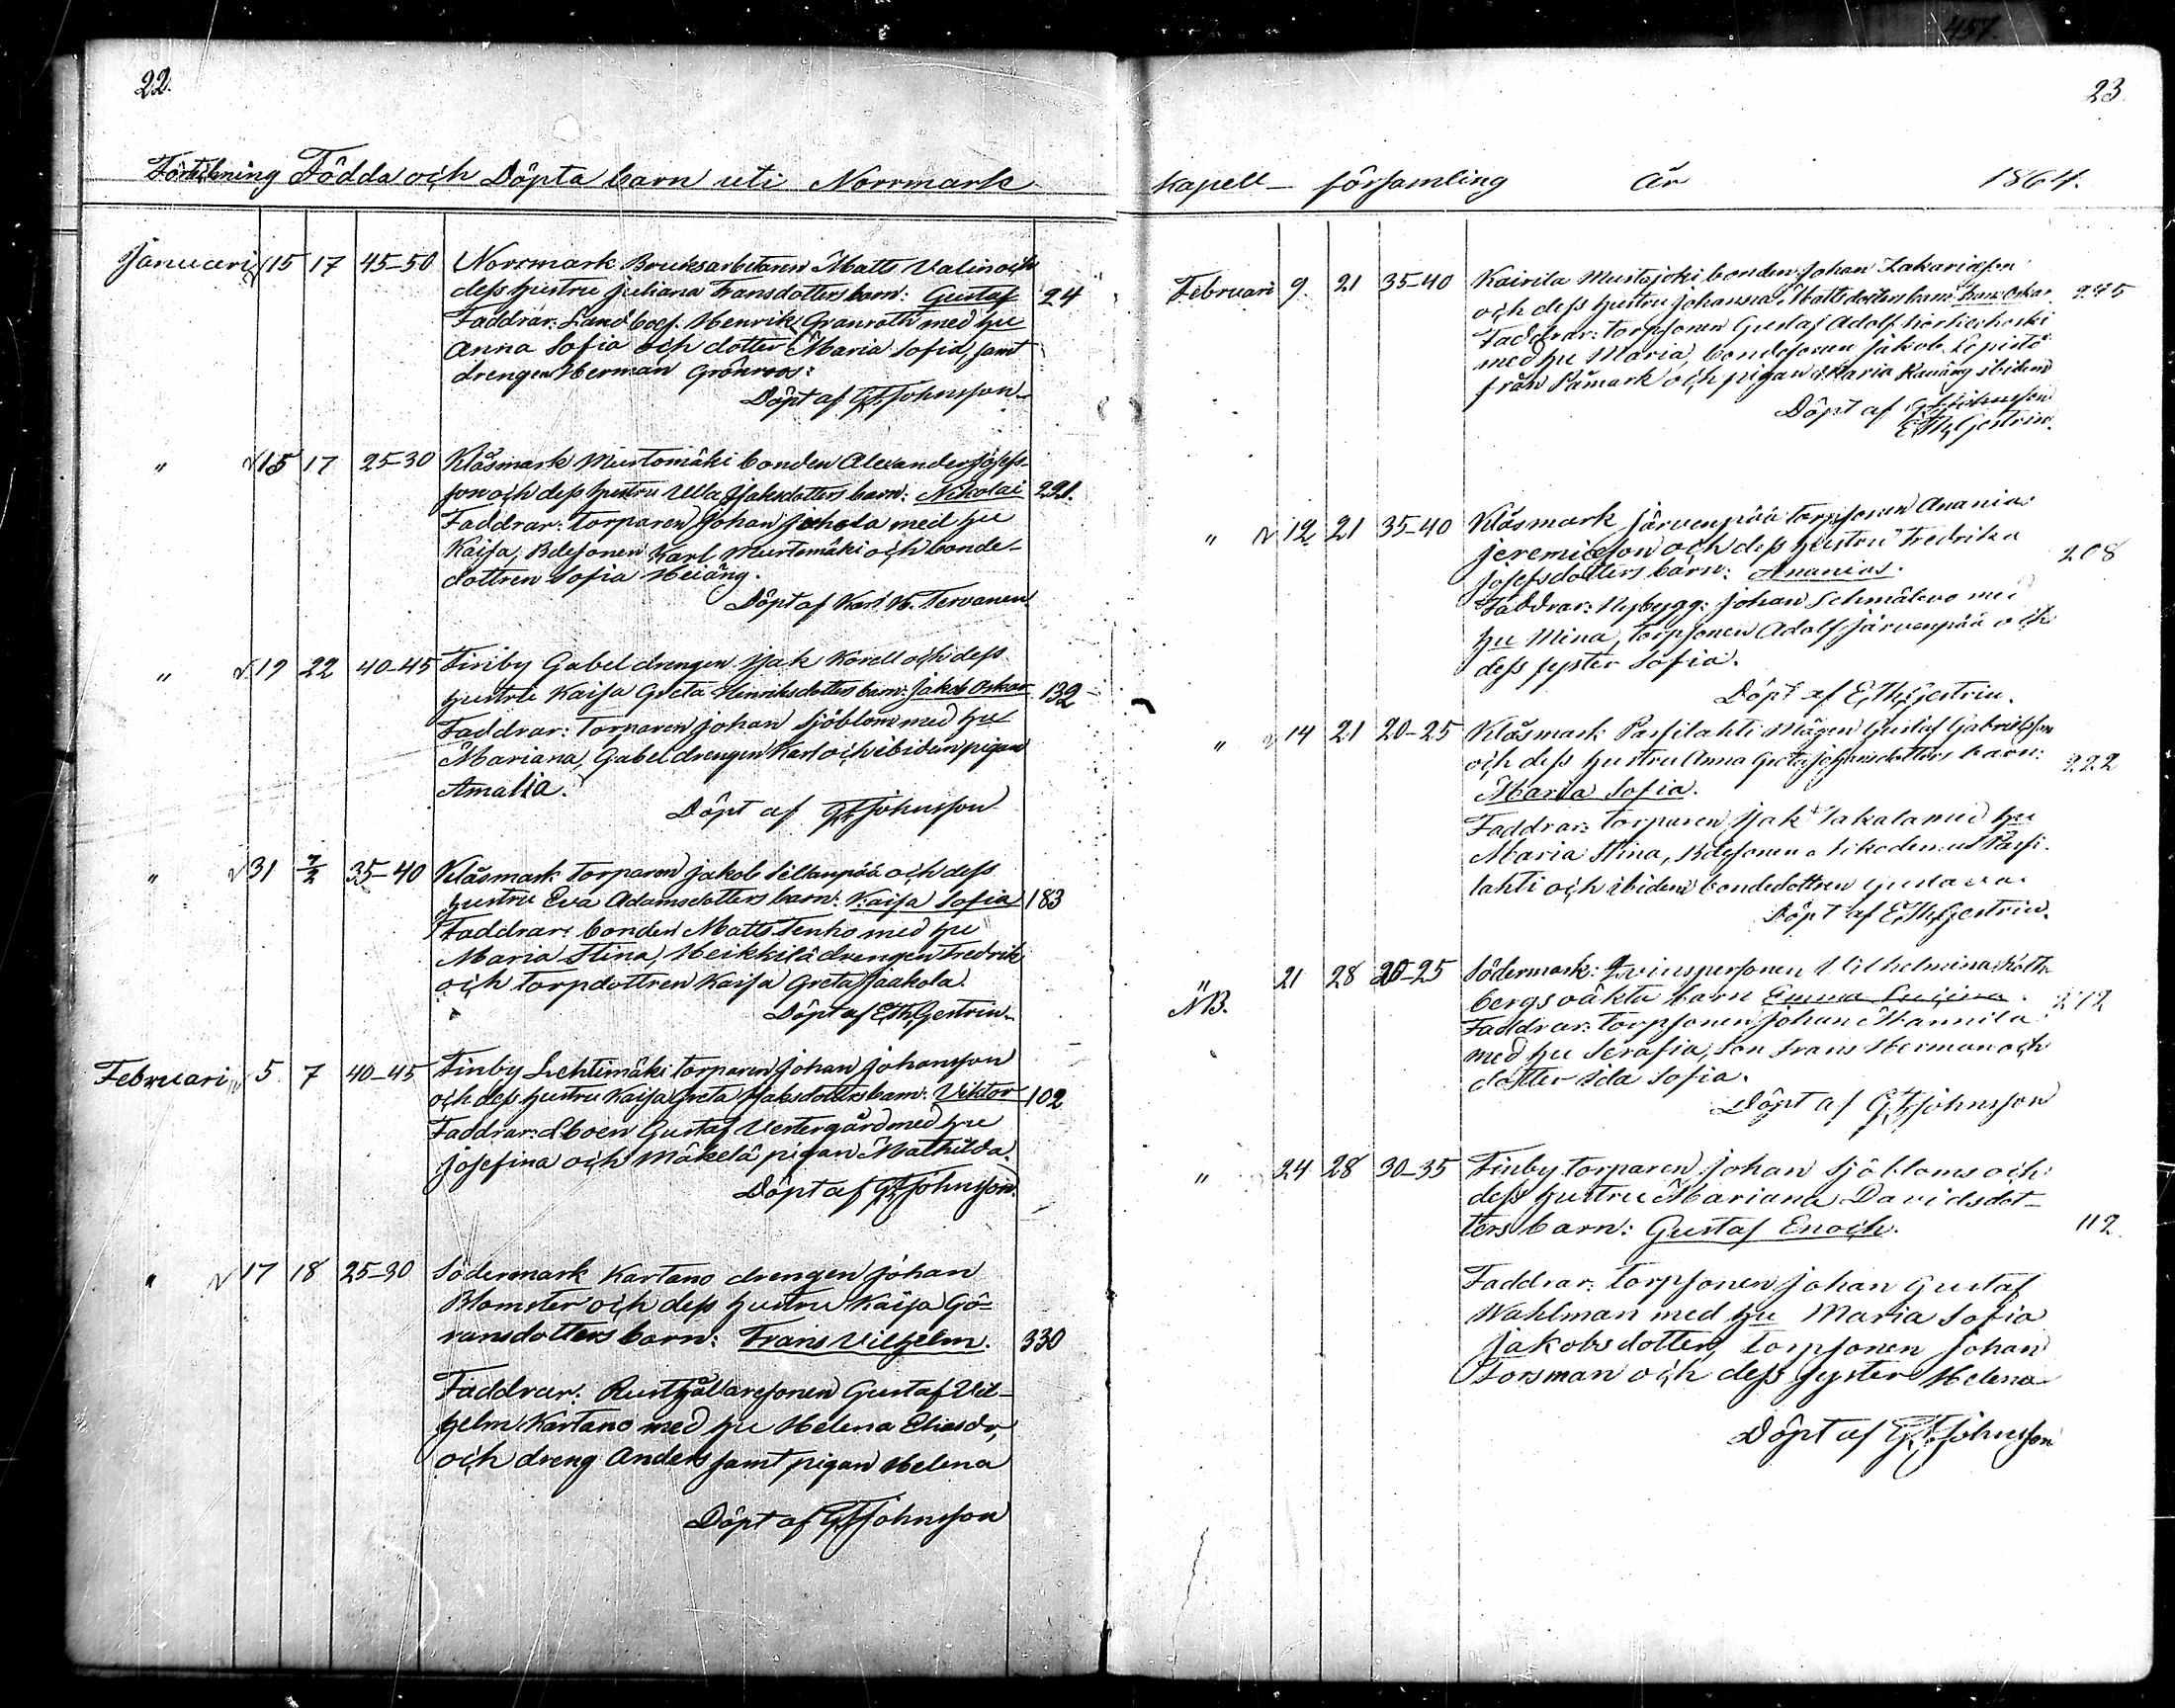 457.
22.
Förteckning Födda och Döpta barn uti Norrmark
Januari 15 17 45-50 Norrmark Bruksarbetaren Matts Valin och
dess hustru Juliana Fransdotters barn: Gustaf 24
Faddrar: Landboen Henrik Granroth med hu
Anna Sofia och dotter Maria Sofia, samt
drengen Herman Grönroos:
Döpt af G F Johnsson
" 15 17 25-30 Klåsmark Murtomäki bonden Alexander Josefs-
son och dess hustru Ulla Jaksdotters barn: Nikolai 221.
Faddrar: torparen Johan Juhola med hu
Kaisa, Bdesonen Karl Murtomäki och bonde-
dottren Sofia Heiäng.
Döpt af Karl K. Tervanen.
" 19 22 40-45 Finby Gabel drengen Jak Korell och dess
hustru Kaisa Greta Henriksdotters barn: Jakob Oskar 132
Faddrar: Torparen Johan Sjöblom med hu
Mariana, Gabel drengen Karl och ibidem pigan
Amalia.
Döpt af G F Johnsson
" 31 7/2 35-40 Klåsmark torparen Jakob Sillanpää och dess
hustru Eva Adamsdotters barn: Kaisa Sofia 183
Faddrar: bonden Matts Tenho med hu
Maria Stina, Heikkilä drengen Fredrik
och torpdottren Kaisa Greta Jaakola.
Döpt af E, Th, Gestrin.
Februari 5 7 40-45 Finby Lehtimäki torparen Johan Johansson
och dess hustru Kaisa Greta Jaksdotters barn: Viktor 102
Faddrar: Lboen Gustaf Vestergård med hu
Josefina och Mäkelä pigan Mathilda.
Döpt af G F Johnsson.
" 17 18 25-30 Södermark Kartano drengen Johan
Blomster och dess hustru Kaisa Gö-
ransdotters barn: Frans Vilhelm. 330
Faddrar: Rusthållaresonen Gustaf Vil-
helm Kartano med hu Helena Eliasdr,
och dreng Anders samt pigan Helena
Döpt af G F Johnsson
23.
kapell- församling År 1864.
Februari 9 21 35-40 Kairila Mustajoki bonden Johan Zakariasson
och dess hustru Johanna Mattsdotters barn: Frans Oskar 245
Faddrar: torpsonen Gustaf Adolf
med hu Maria, bondesonen Jakob Lepistö
från Påmark och pigan Maria ibidem
Döpt af G F Johnsson
E, Th, Gestrin.
" 12 21 35-40 Klåsmark Järvenpää torpsonen Ananias
Jeremiasson och dess hustru Fredrika
Josefsdotters barn: Ananias. 208
Faddrar: Nybygg: Johan med
hu Mina, torpsonen Adolf Järvenpää och
dess syster Sofia.
Döpt af E, Th, Gestrin.
" 14 21 20-25 Klåsmark Passilahti Mågen Gustaf Gabrielsson
och dess hustru Anna Greta Johansdotters barn: 222
Maria Sofia.
Faddrar: torparen Jak med hu
Maria Stina, Bdesonen Nikodemus Passi-
lahti och ibidem bondedottren Gustava.
Döpt af E, Th, Gestrin.
" 21 28 20-25 Södermark: Qvinspersonen Vilhelmina
NB. bergs oäkta barn Emma Lucina. 272
Faddrar: Torpsonen Johan Mannila
med hu Serafia, Son Frans Herman och
dotter Ida Sofia.
Döpt af G F Johnsson
" 24 28 30-35 Finby torparen Johan Sjöbloms och
dess hustru Mariana Davidsdot-
ters barn: Gustaf Enoch. 112.
Faddrar: torpsonen Johan Gustaf
Wahlman med hu Maria Sofia
Jakobsdotter, torpsonen Johan
Forsman och dess syster Helena
Döpt af G F Johnsson